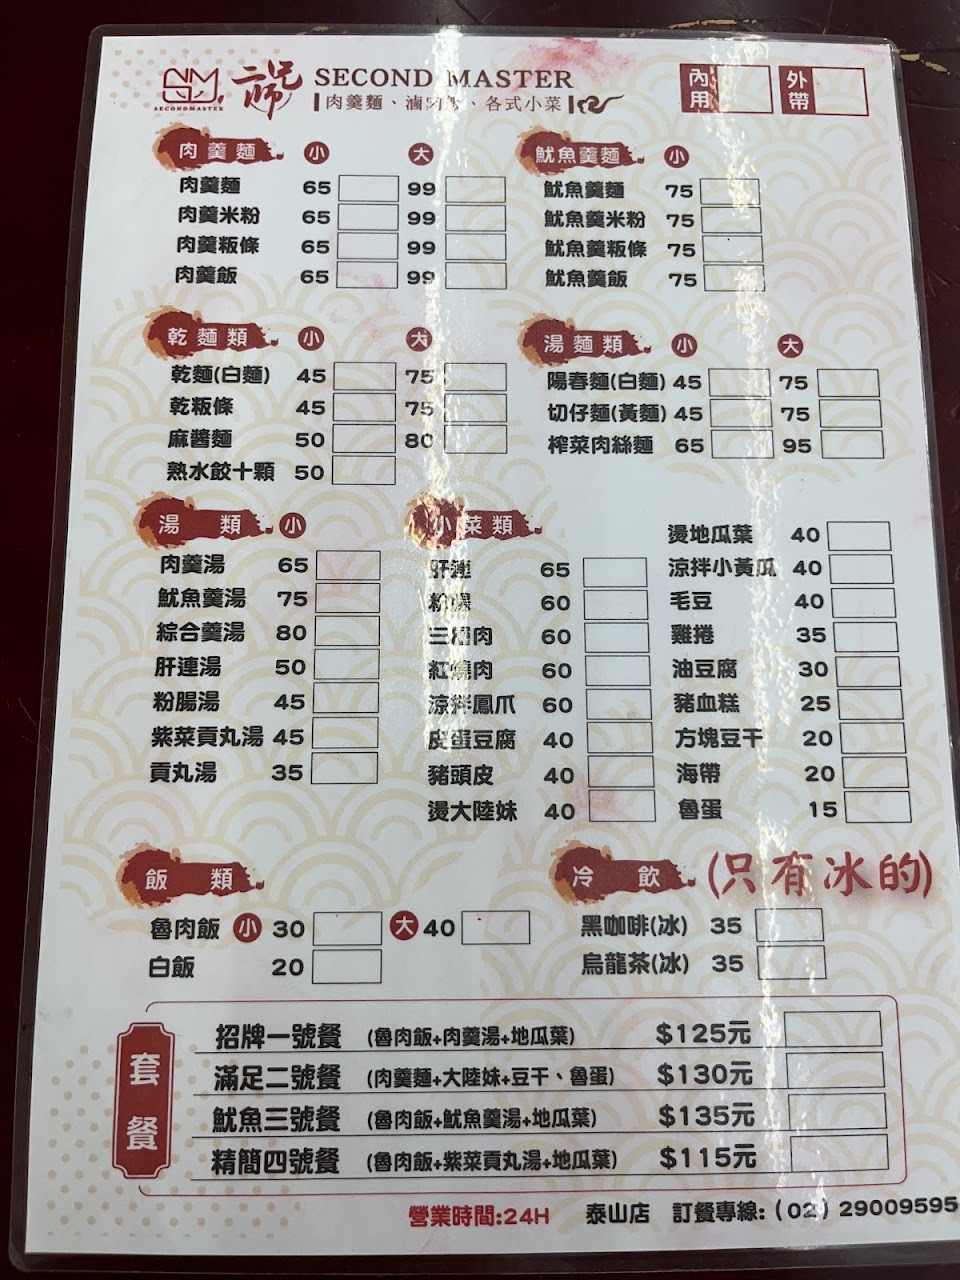 SECONDMASTER
二師兄 SECOND MASTER
肉羹麵、滷肉飯、各式小菜
內用 外帶
肉羹麵 小 大
肉羹麵 65 99
肉羹米粉 65 99
肉羹粄條 65 99
肉羹飯 65 99
魷魚羹麵 小
魷魚羹麵 75
魷魚羹米粉 75
魷魚羹粄條 75
魷魚羹飯 75
乾麵類 小 大
乾麵(白麵) 45 75
乾粄條 45 75
麻醬麵 50 80
熟水餃十顆 50
湯麵類 小 大
陽春麵(白麵) 45 75
切仔麵(黃麵) 45 75
榨菜肉絲麵 65 95
湯類 小
肉羹湯 65
魷魚羹湯 75
綜合羹湯 80
肝連湯 50
粉腸湯 45
紫菜貢丸湯 45
貢丸湯 35
小菜類
肝連 65
粉腸 60
三層肉 60
紅燒肉 60
涼拌鳳爪 60
皮蛋豆腐 40
豬頭皮 40
燙大陸妹 40
燙地瓜葉 40
涼拌小黃瓜 40
毛豆 40
雞捲 35
油豆腐 30
豬血糕 25
方塊豆干 20
海帶 20
魯蛋 15
飯類
魯肉飯 小 30 大 40
白飯 20
冷飲 (只有冰的)
黑咖啡(冰) 35
烏龍茶(冰) 35
套餐
招牌一號餐 (魯肉飯+肉羹湯+地瓜葉) $125元
滿足二號餐 (肉羹麵+大陸妹+豆干、魯蛋) $130元
魷魚三號餐 (魯肉飯+魷魚羹湯+地瓜葉) $135元
精簡四號餐 (魯肉飯+紫菜貢丸湯+地瓜葉) $115元
營業時間:24H 泰山店 訂餐專線:(02)29009595